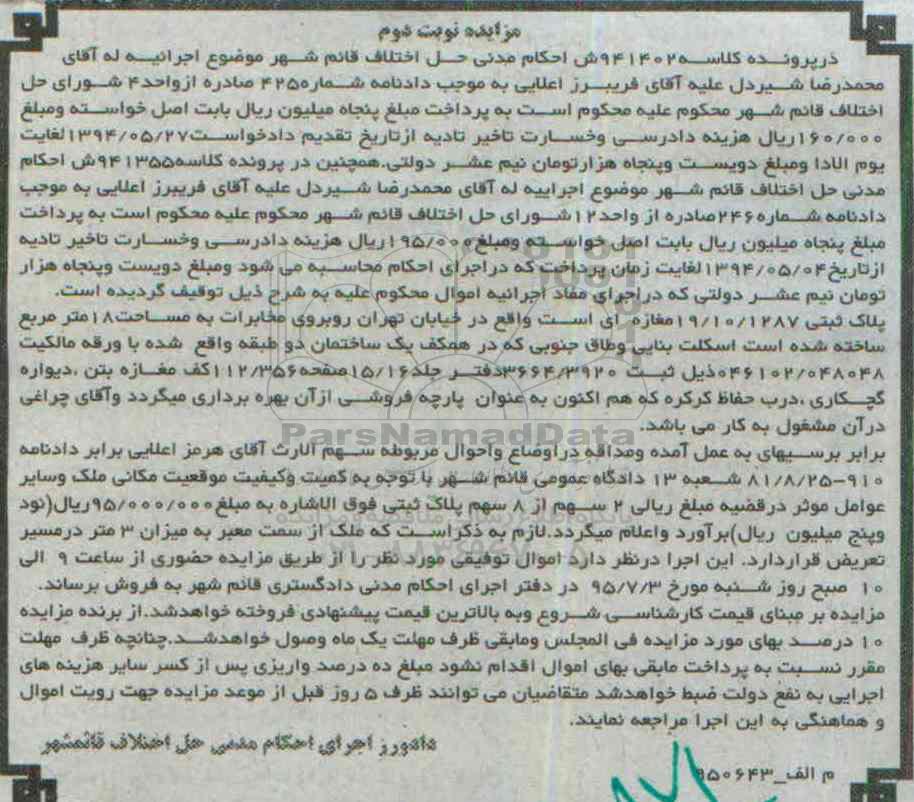 مزایده نوبت دوم
درپرونده کلاسه۹۴۱۴۰۲ش احکام مدنی حل اختلاف قائم شهر موضوع اجرائیه له آقای
محمدرضا شیردل علیه آقای فریبرز اعلایی به موجب دادنامه شماره۴۲۵ صادره ازواحد۴ شورای حل
اختلاف قائم شهر محکوم علیه محکوم است به پرداخت مبلغ پنجاه میلیون ریال بابت اصل خواسته ومبلغ
۱۶۰/۰۰۰ریال هزینه دادرسی وخسارت تاخیر تادیه ازتاریخ تقدیم دادخواست۱۳۹۴/۰۵/۲۷لغایت
یوم الادا ومبلغ دویست وپنجاه هزارتومان نیم عشر دولتی.همچنین در پرونده کلاسه۹۴۱۳۵۵ش احکام
مدنی حل اختلاف قائم شهر موضوع اجراییه له آقای محمدرضا شیردل علیه آقای فریبرز اعلایی به موجب
دادنامه شماره۲۴۶صادره از واحد۱۲شورای حل اختلاف قائم شهر محکوم علیه محکوم است به پرداخت
مبلغ پنجاه میلیون ریال بابت اصل خواسته ومبلغ۱۹۵/۰۰۰ریال هزینه دادرسی وخسارت تاخیر تادیه
ازتاریخ۱۳۹۴/۰۵/۰۴لغایت زمان پرداخت که دراجرای احکام محاسبه می شود ومبلغ دویست وپنجاه هزار
تومان نیم عشر دولتی که دراجرای مفاد اجرائیه اموال محکوم علیه به شرح ذیل توقیف گردیده است.
پلاک ثبتی ۱۹/۱۰/۱۲۸۷مغازه ای است واقع در خیابان تهران روبروی مخابرات به مساحت۱۸متر مربع
ساخته شده است اسکلت بنایی وطاق جنوبی که در همکف یک ساختمان دو طبقه واقع شده با ورقه مالکیت
۰۴۶۱۰۲/۰۴۸۰۴۸ذیل ثبت ۳۶۶۴/۳۹۲۰دفتر جلد۱۵/۱۶صفحه۱۱۲/۳۵۶کف مغازه بتن ،دیواره
گچکاری ،درب حفاظ کرکره که هم اکنون به عنوان پارچه فروشی ازآن بهره برداری میگردد وآقای چراغی
درآن مشغول به کار می باشد.
ParsNamadData
برابر برسیهای به عمل آمده ومداقه دراوضاع واحوال مربوطه سهم الارث آقای هرمز اعلایی برابر دادنامه
۹۱۰-۸۱/۸/۲۵ شعبه ۱۳ دادگاه عمومی قائم شهر با توجه به کمیت وکیفیت موقعیت مکانی ملک وسایر
عوامل موثر درقضیه مبلغ ریالی ۲ سهم از ۸ سهم پلاک ثبتی فوق الاشاره به مبلغ۹۵/۰۰۰/۰۰۰ریال(نود
وپنج میلیون ریال)برآورد واعلام میگردد.لازم به ذکراست که ملک از سمت معبر به میزان ۳ متر درمسیر
تعریض قراردارد. این اجرا درنظر دارد اموال توقیفی مورد نظر را از طریق مزایده حضوری از ساعت ۹ الی
۱۰ صبح روز شنبه مورخ ۹۵/۷/۳ در دفتر اجرای احکام مدنی دادگستری قائم شهر به فروش برساند.
مزایده بر مبنای قیمت کارشناسی شروع وبه بالاترین قیمت پیشنهادی فروخته خواهدشد.از برنده مزایده
۱۰ درصد بهای مورد مزایده فی المجلس ومابقی ظرف مهلت یک ماه وصول خواهدشد.چنانچه ظرف مهلت
مقرر نسبت به پرداخت مابقی بهای اموال اقدام نشود مبلغ ده درصد واریزی پس از کسر سایر هزینه های
اجرایی به نفع دولت ضبط خواهدشد متقاضیان می توانند ظرف ۵ روز قبل از موعد مزایده جهت رویت اموال
و هماهنگی به این اجرا مراجعه نمایند.
دادورز اجرای احکام مدنی حل اختلاف قائمشهر
م الف_۹۵۰۶۴۳